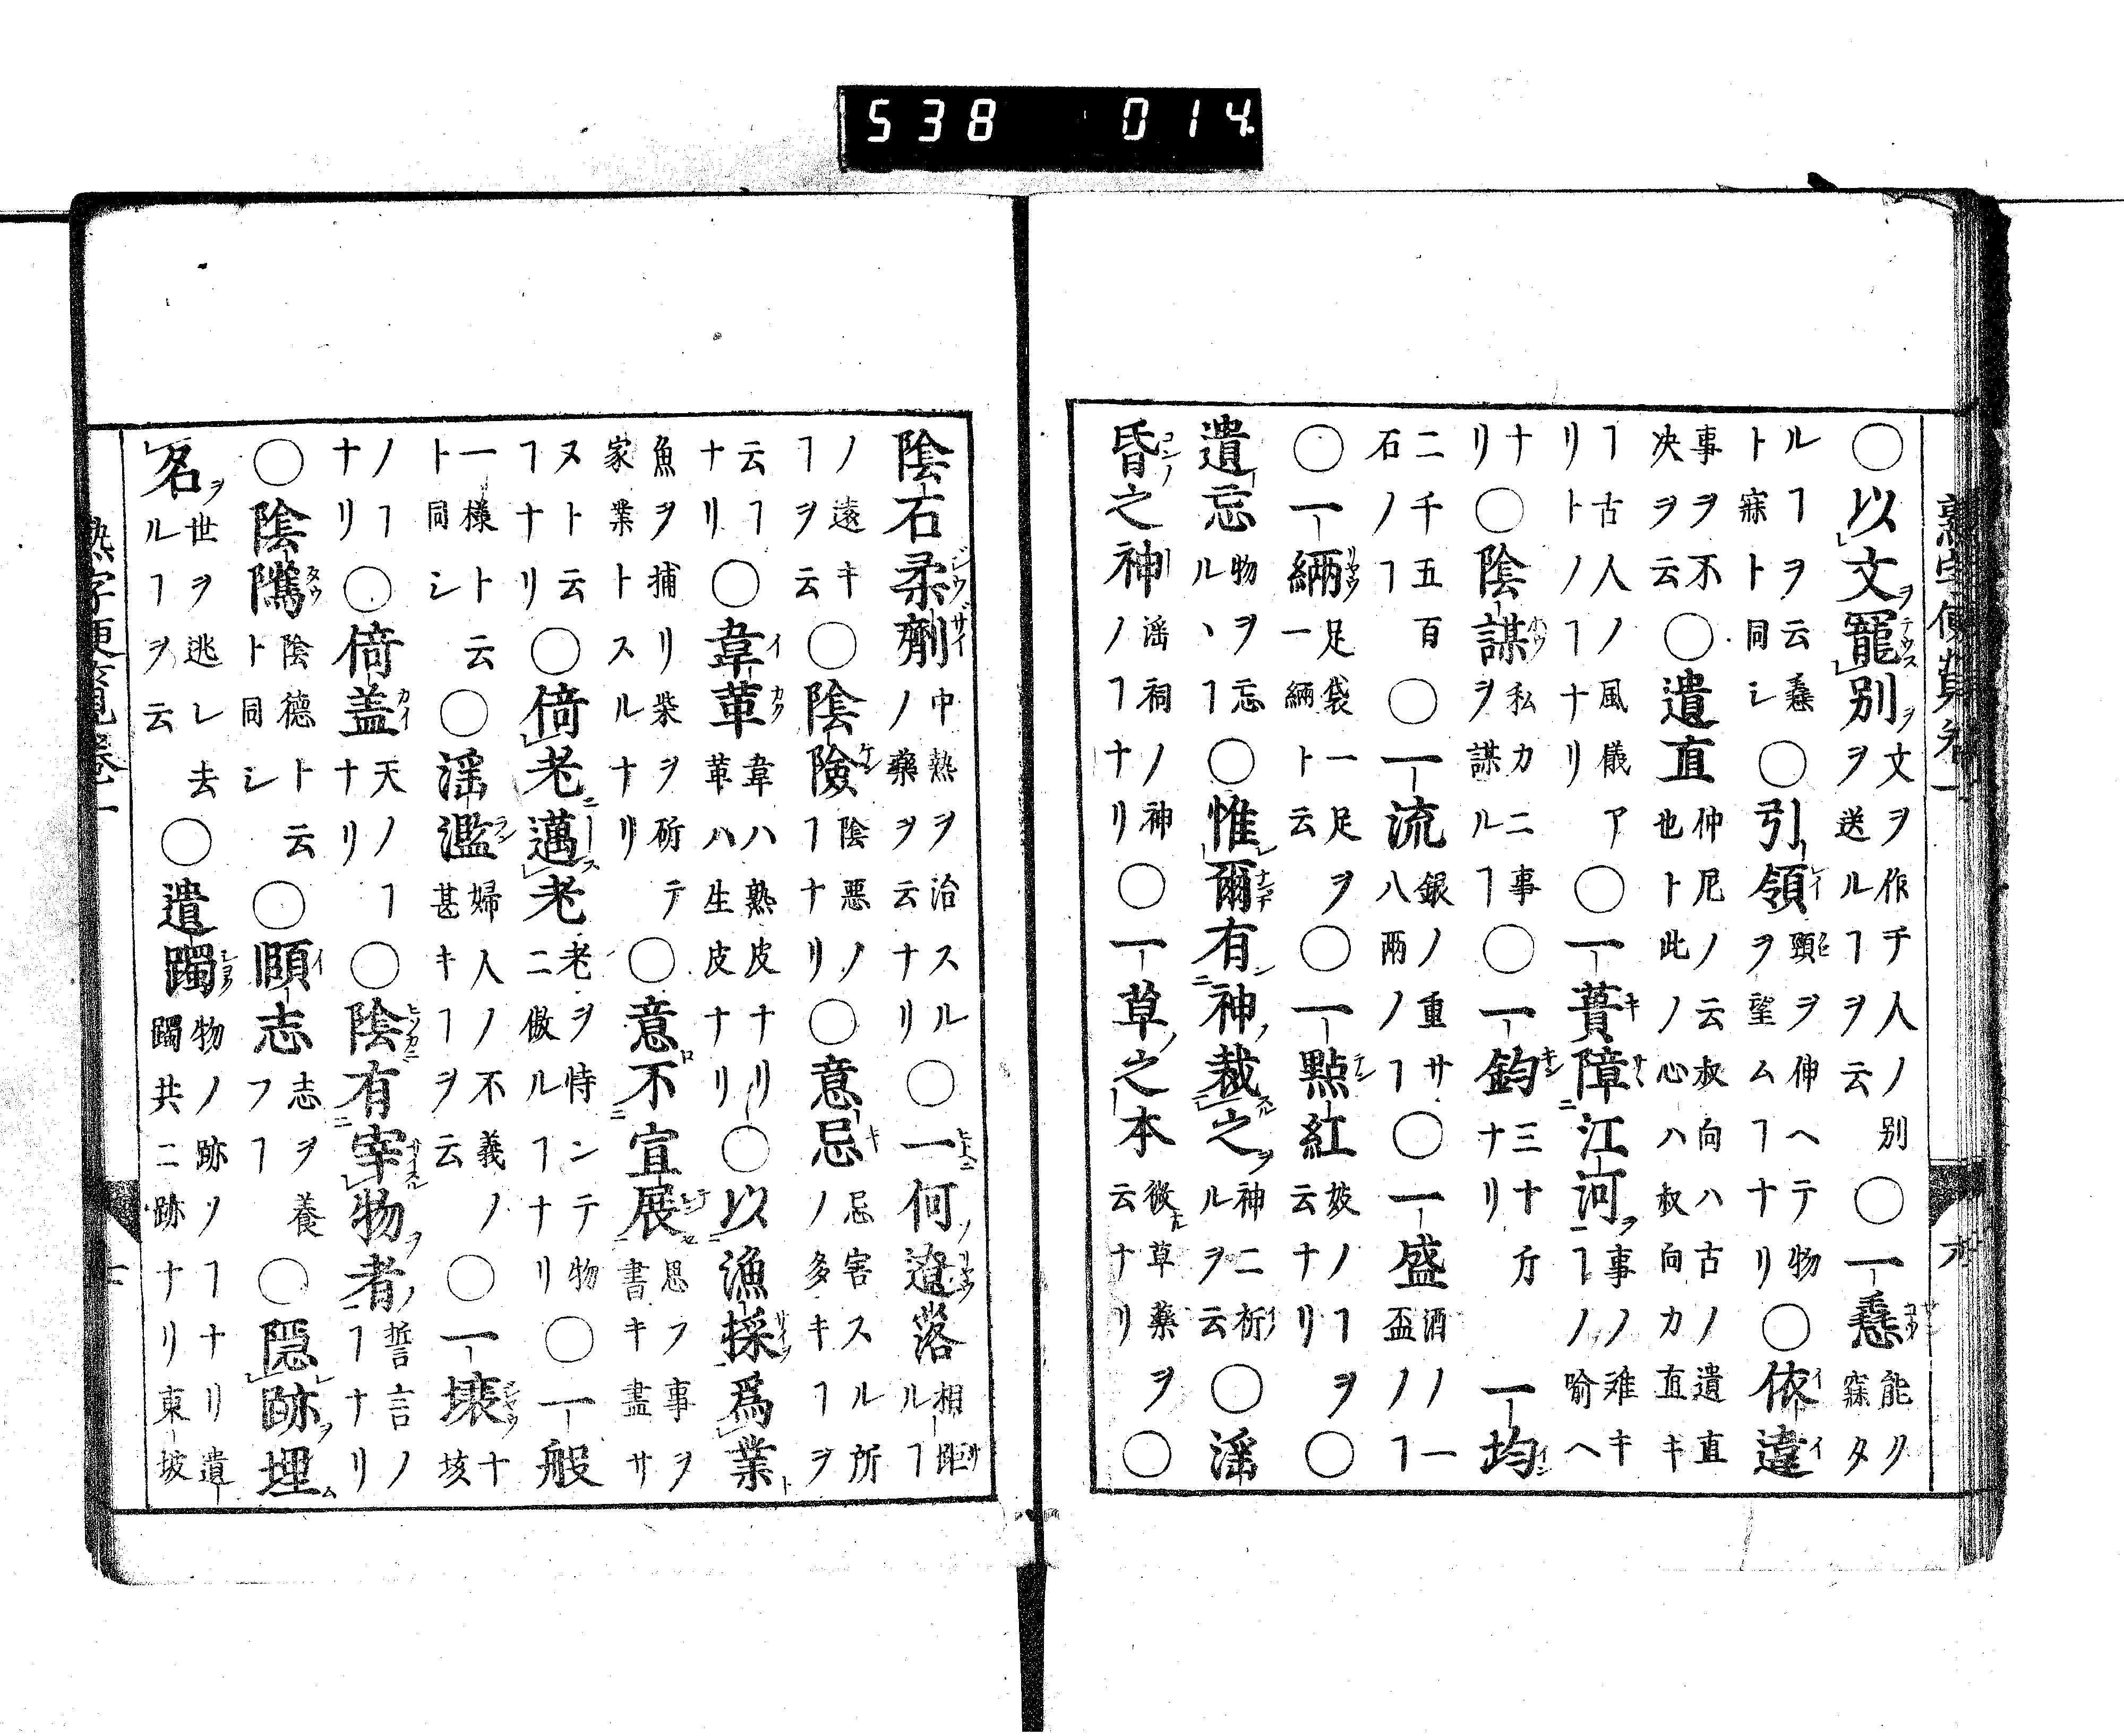 538 014
○以文寵別文ヲ作テ人ノ別ヲ送ルヿヲ云○一憃能ク寐タ
ルヿヲ云憃ト寐ト同シ○引領頸ヲ伸ヘテ物ヲ望ムヿナリ○依違
事ヲ不决ヲ云○遺直仲尼ノ云叔向ハ古ノ遺直也ト此ノ心ハ叔向カ直キ
ヿ古人ノ風儀アリトノヿナリ○一蕢障江河事ノ难キヿノ喩ヘ
ナリ○陰謀私カニ事ヲ謀ルヿ○一鈞三十斤ナリ一均
二千五百石ノヿ○一流銀ノ重サ八兩ノヿ○一盛酒ノ一盃ノヿ
○一緉足袋一足ヲ一緉ト云○一點紅妓ノヿヲ云ナリ○
遺忘物ヲ忘ルヽヿ○惟爾有神裁之神ニ祈ルヲ云○淫
昏之神淫祠ノ神ノヿナリ○一草之本微草藥ヲ云ナリ○
陰石柔劑中熱ヲ治スルノ藥ヲ云ナリ○一何遼落相距ルヿ
ノ遠キヿヲ云○陰險陰悪ノヿナリ○意忌忌害スル所ノ多キヿヲ
云ヿナリ○韋革韋ハ熟皮ナリ革ハ生皮ナリ○以漁採爲業
魚ヲ捕リ柴ヲ斫テ家業トスルナリ○意不宣展思フ事ヲ書キ盡サ
ヌト云ヿナリ○倚老邁老老ヲ恃ンテ物ニ傲ルヿナリ○一般
一様ト云ト同シ○淫濫婦人ノ不義ノ甚キヿヲ云○一壊十垓
ノヿナリ○倚盖天ノヿナリ○陰有宰物者誓言ノヿナリ
○陰隲陰德ト云ト同シ○頤志志ヲ養フヿ○隠跡埋
名世ヲ逃レ去ルヿヲ云○遺躅物ノ跡ノヿナリ遺躅共ニ跡ナリ東坡
熟字便覧巻一